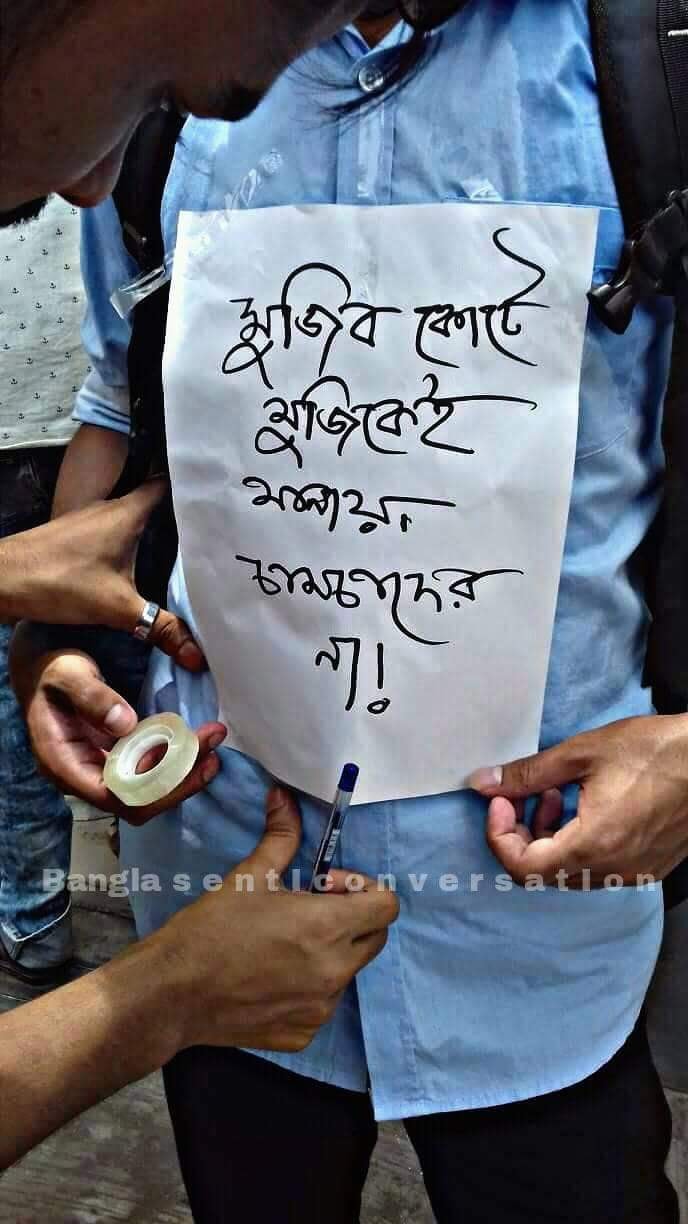 মুজিব কোটে
মুজিকেই
মানায়।
চামচাদের
না!
Bangla senti conversation